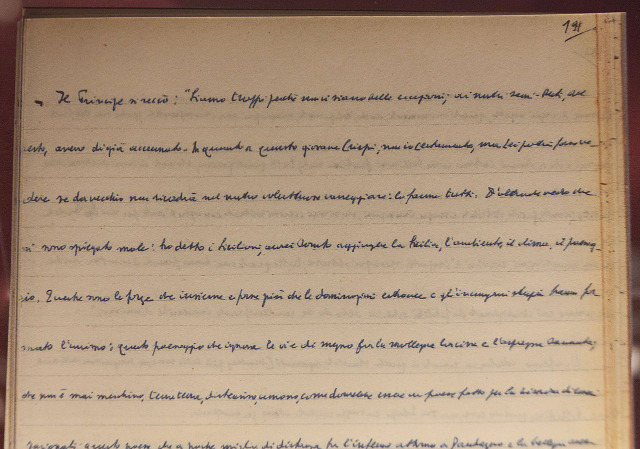 191
Il Principe si seccò: "Siamo troppi perché non vi siano delle eccezioni; ai nostri semi-desti, del
resto, avevo di già accennato. In quanto a questo giovane Crispi, non io certamente, ma Lei potrà forse ve-
dere se da vecchio non ricadrà nel nostro voluttuoso vaneggiare: lo fanno tutti. D'altronde vedo che
mi sono spiegato male: ho detto i Siciliani, avrei dovuto aggiungere la Sicilia, l'ambiente, il clima, il paesag-
gio. Queste sono le forze che insieme e forse più che le dominazioni estranee e gli incongrui stupri hanno for
mato l'animo: questo paesaggio che ignora le vie di mezzo fra la mollezza lasciva e l'asprezza dannata;
che non è mai meschino, terra terra, distensivo, umano, come dovrebbe essere un paese fatto per la dimora di esseri
razionali; questo paese che a poche miglia di distanza ha l'inferno attorno a Randazzo e la bellezza